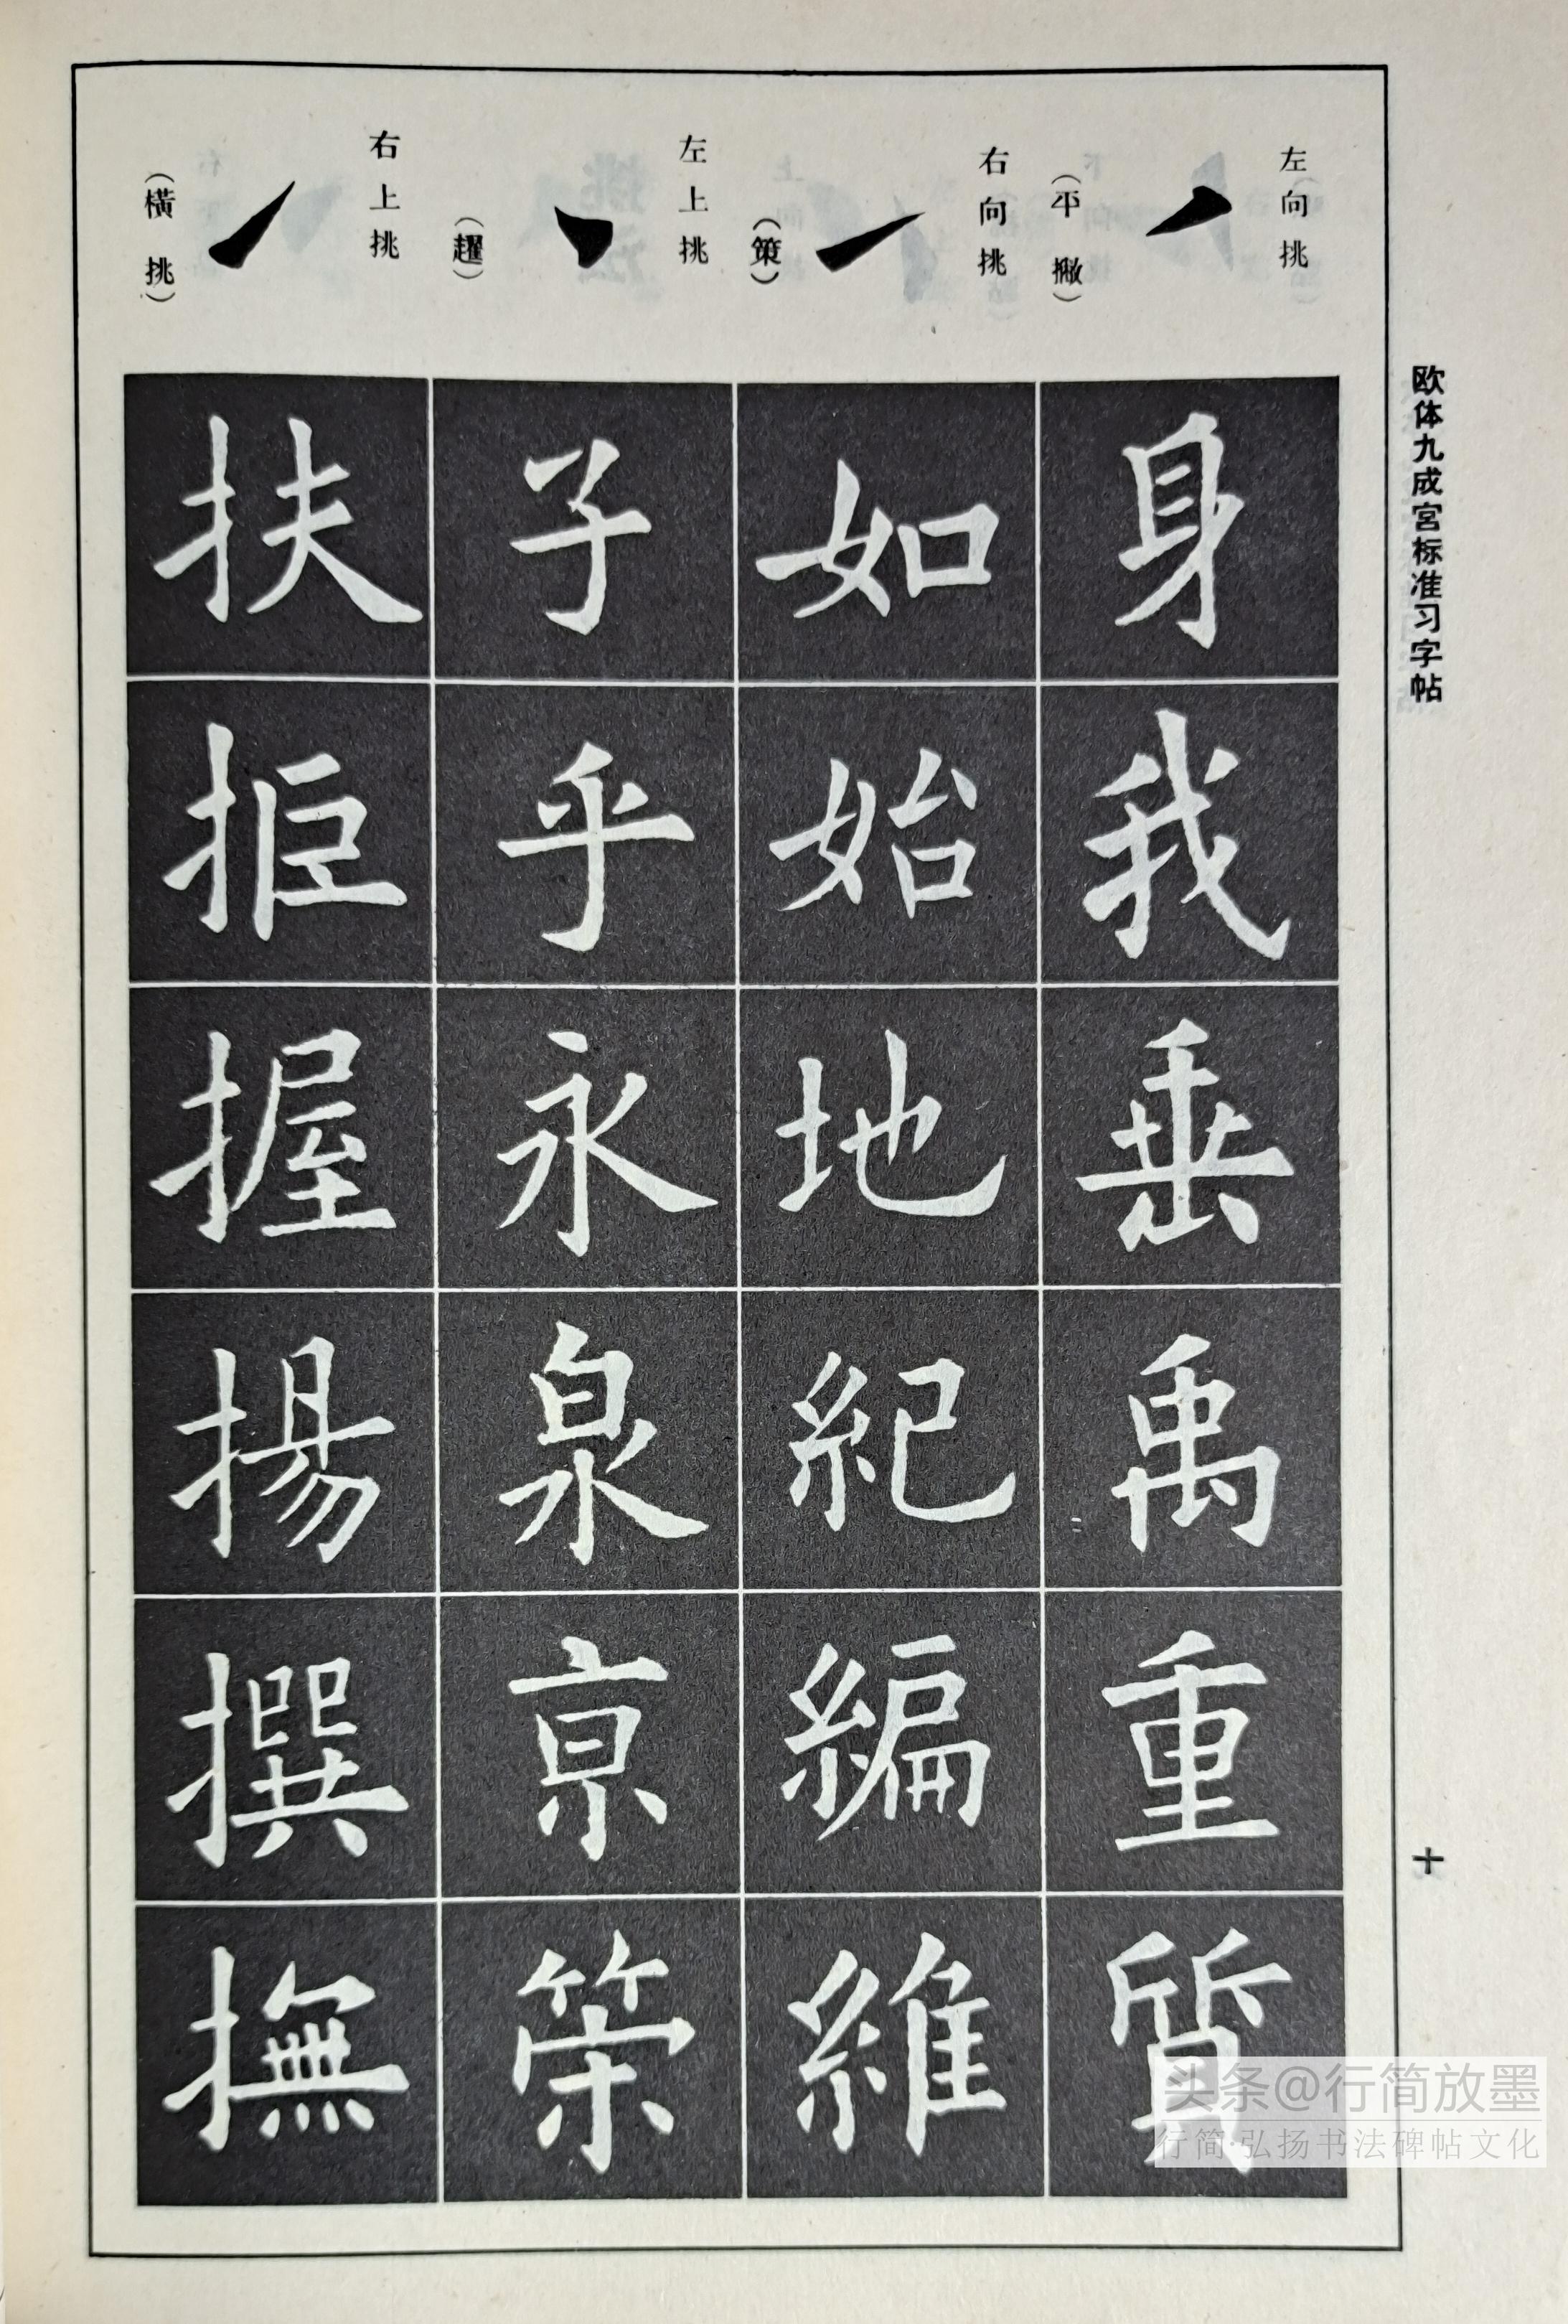 欧体九成宫标准习字帖
十
左向挑
（平撇）
右向挑
（策）
左上挑
（趯）
右上挑
（横挑）
身我垂禹重質
如始地紀編維
子乎永泉京策
扶拒握揚撰撫
头条@行简放墨
行简·弘扬书法碑帖文化